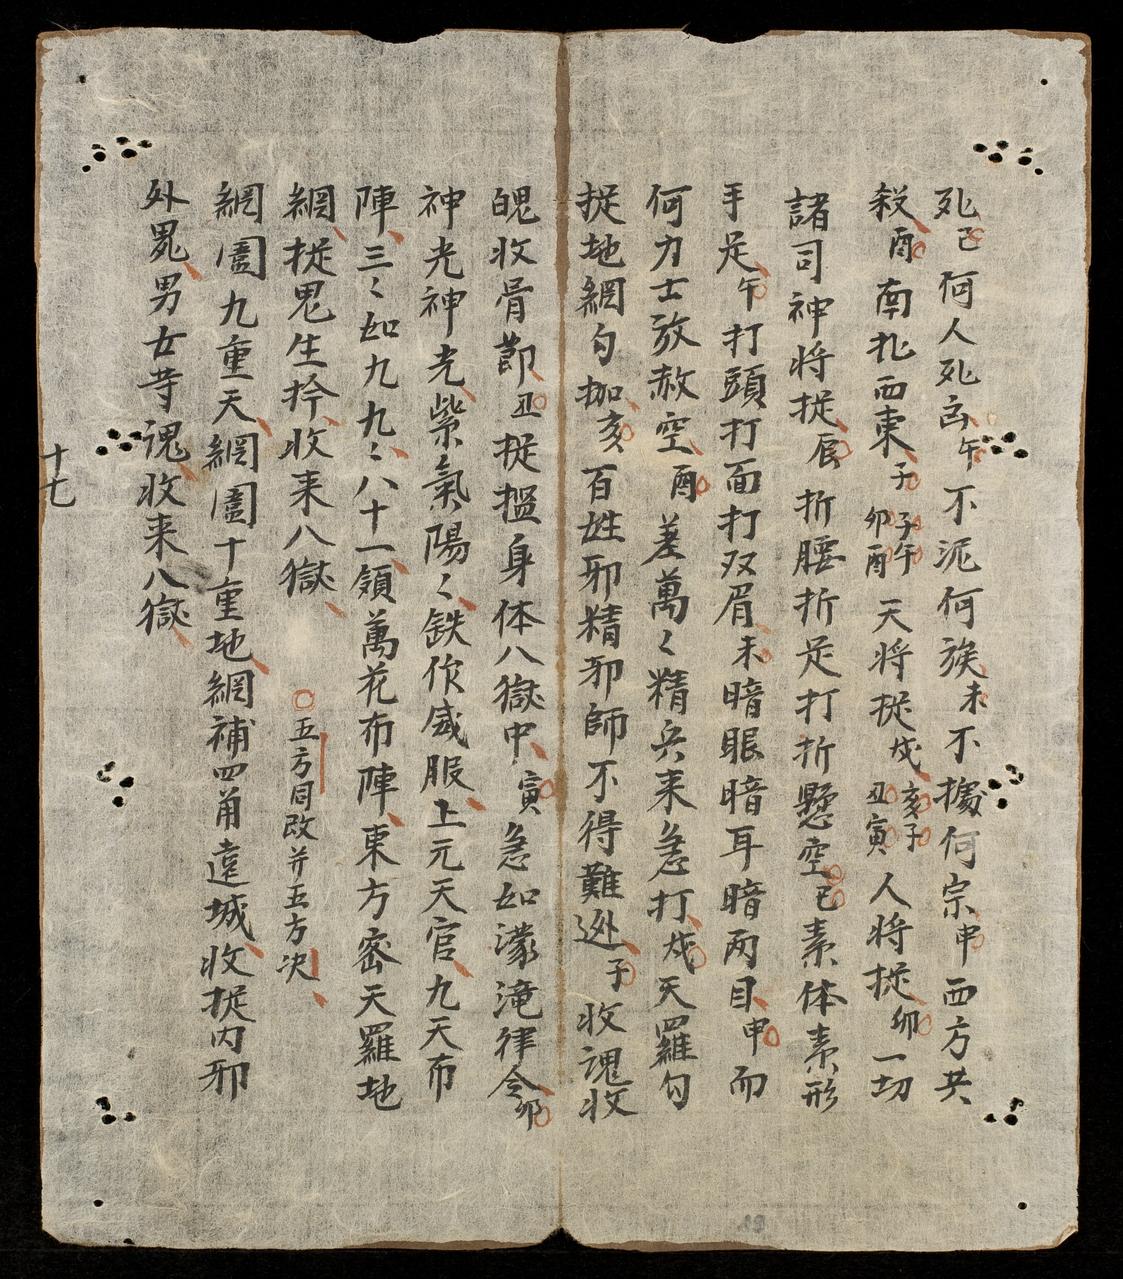 死巳何人死㐫午不泥何族未不據何宗申西方共
殺酉南北西東子子午卯酉天将捉戌亥子丑寅人将捉卯一切
諸司神将捉辰折腰折足打折懸空巳素体素形
手足午打頭打面打双眉未暗眼暗耳暗两目申而
何力士放赦空酉差萬〻精兵来急打戌天羅勾
捉地網勾枷亥百姓邪精邪師不得難迯子收魂收
魄收骨節丑捉搵身体八獄中寅急如濛滝律令卯
神光神光紫氣陽〻鉄作威服上元天官九天布
陣三〻如九九〻八十一領萬花布陣東方密天羅地
網捉鬼生拎收来八獄
五方同改并五方决
網圍九重天網圍十重地網補四角遠城收捉内邪
外鬼男女等魂收来八獄
十七